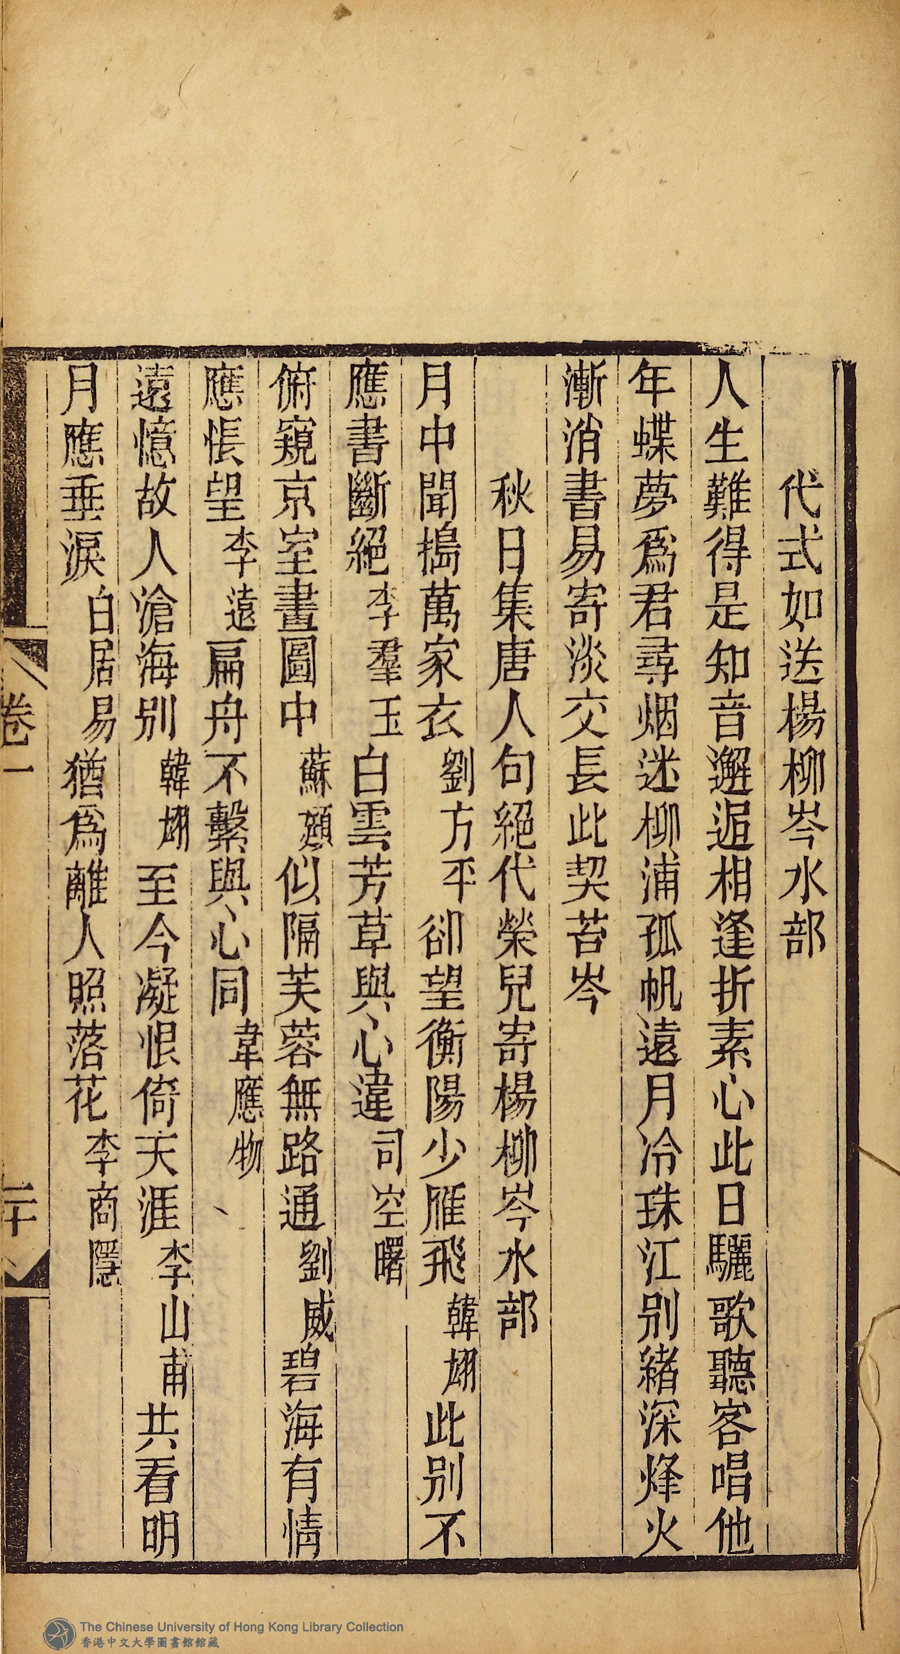 代式如送楊柳岑水部
人生難得是知音邂逅相逢折素心此日驪歌聽客唱他
年蝶夢爲君尋烟迷柳浦孤帆遠月冷珠江别緒深烽火
漸消書易寄淡交長此契苔岑
秋日集唐人句絕代榮兒寄楊柳岑水部
月中聞搗萬家衣劉方平卻望衡陽少雁飛韓翃此别不
應書斷絕李羣玉白雲芳草與心違司空曙
俯窺京室畫圖中蘇頲似隔芙蓉無路通劉威碧海有情
應悵望李遠扁舟不繫與心同韋應物
遠憶故人滄海别韓翃至今凝恨倚天涯李山甫共看明
月應垂淚白居易猶爲離人照落花李商隱
卷一
二十
The Chinese University of Hong Kong Library Collection
香港中文大學圖書館館藏